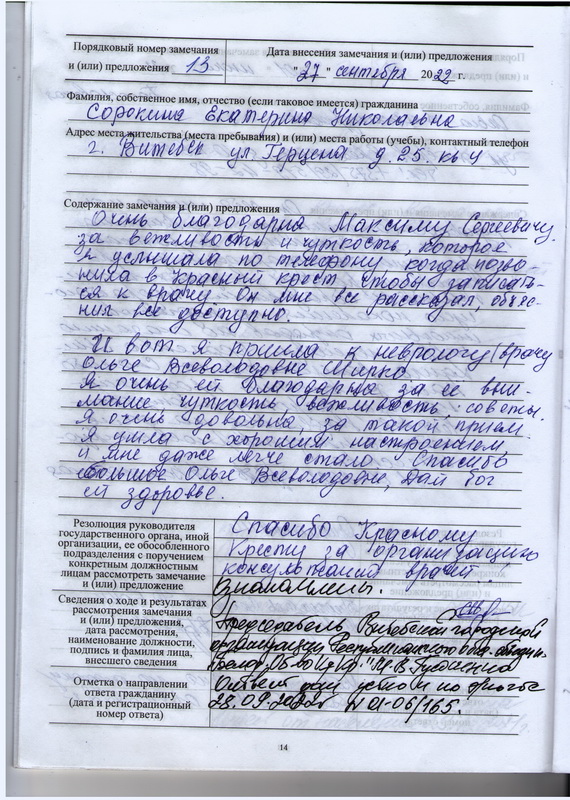 Порядковый номер замечания
и (или) предложения 13
Дата внесения замечания и (или) предложения
"27" сентября 2022 г.
Фамилия, собственное имя, отчество (если таковое имеется) гражданина
Сорокина Екатерина Николаевна
Адрес места жительства (места пребывания) и (или) места работы (учебы), контактный телефон
г. Витебск ул. Герцена д. 25. кв 4
Содержание замечания и (или) предложения
Очень благодарна Максиму Сергеевичу
за вежливость и чуткость, которое
я услышала по телефону, когда позво-
нила в Красный крест чтобы записать-
ся к врачу Он мне все рассказал, объяс-
нил все доступно.
И вот я пришла к неврологу (врачу
Ольге Всеволодовне Мирко
Я очень ей благодарна за ее вни-
мание чуткость вежливость, советы.
Я очень довольна за такой прием.
Я ушла с хорошим настроением,
и мне даже легче стало. Спасибо
большое Ольге Всеволодовне, Дай Бог
ей здоровье.
Резолюция руководителя
государственного органа, иной
организации, ее обособленного
подразделения с поручением
конкретным должностным
лицам рассмотреть замечание
и (или) предложение
Спасибо Красному
Кресту за организацию
консультаций врачей.
Ознакомлены.
Сведения о ходе и результатах
рассмотрения замечания
и (или) предложения,
дата рассмотрения,
наименование должности,
подпись и фамилия лица,
внешнего сведения
Председатель Витебской городской
организации Республиканского
Отметка о направлении
ответа гражданину
(дата и регистрационный
номер ответа)
Ответ дан устно
28.09.2022 N 01-06/165.
14